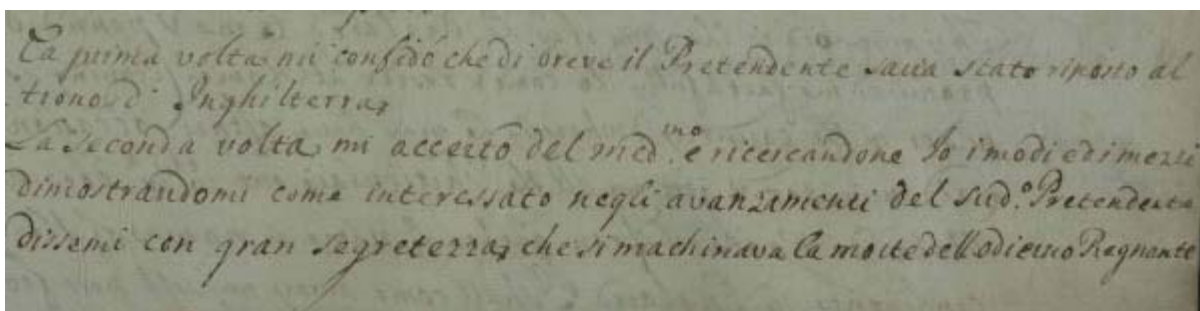 La prima volta mi confidò che di breve il Pretendente saria stato riposto al
trono d' Inghilterra,
La seconda volta mi accertò del med.mo e ricercandone Io i modi ed i mezzi
dimostrandomi come interessato negli avanzamenti del sud.o Pretendente
dissemi con gran segretezza, che si machinava la morte dell odierno Regnante